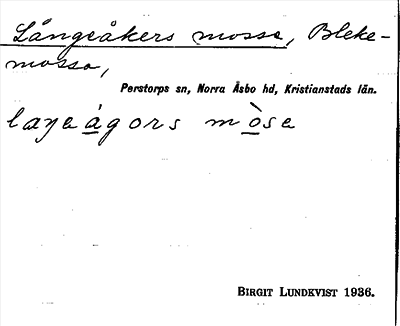 Långeåkers mosse, Bleke-
mossa,
Perstorps sn, Norra Åsbo hd, Kristianstads län.
BIRGIT LUNDKVIST 1936.